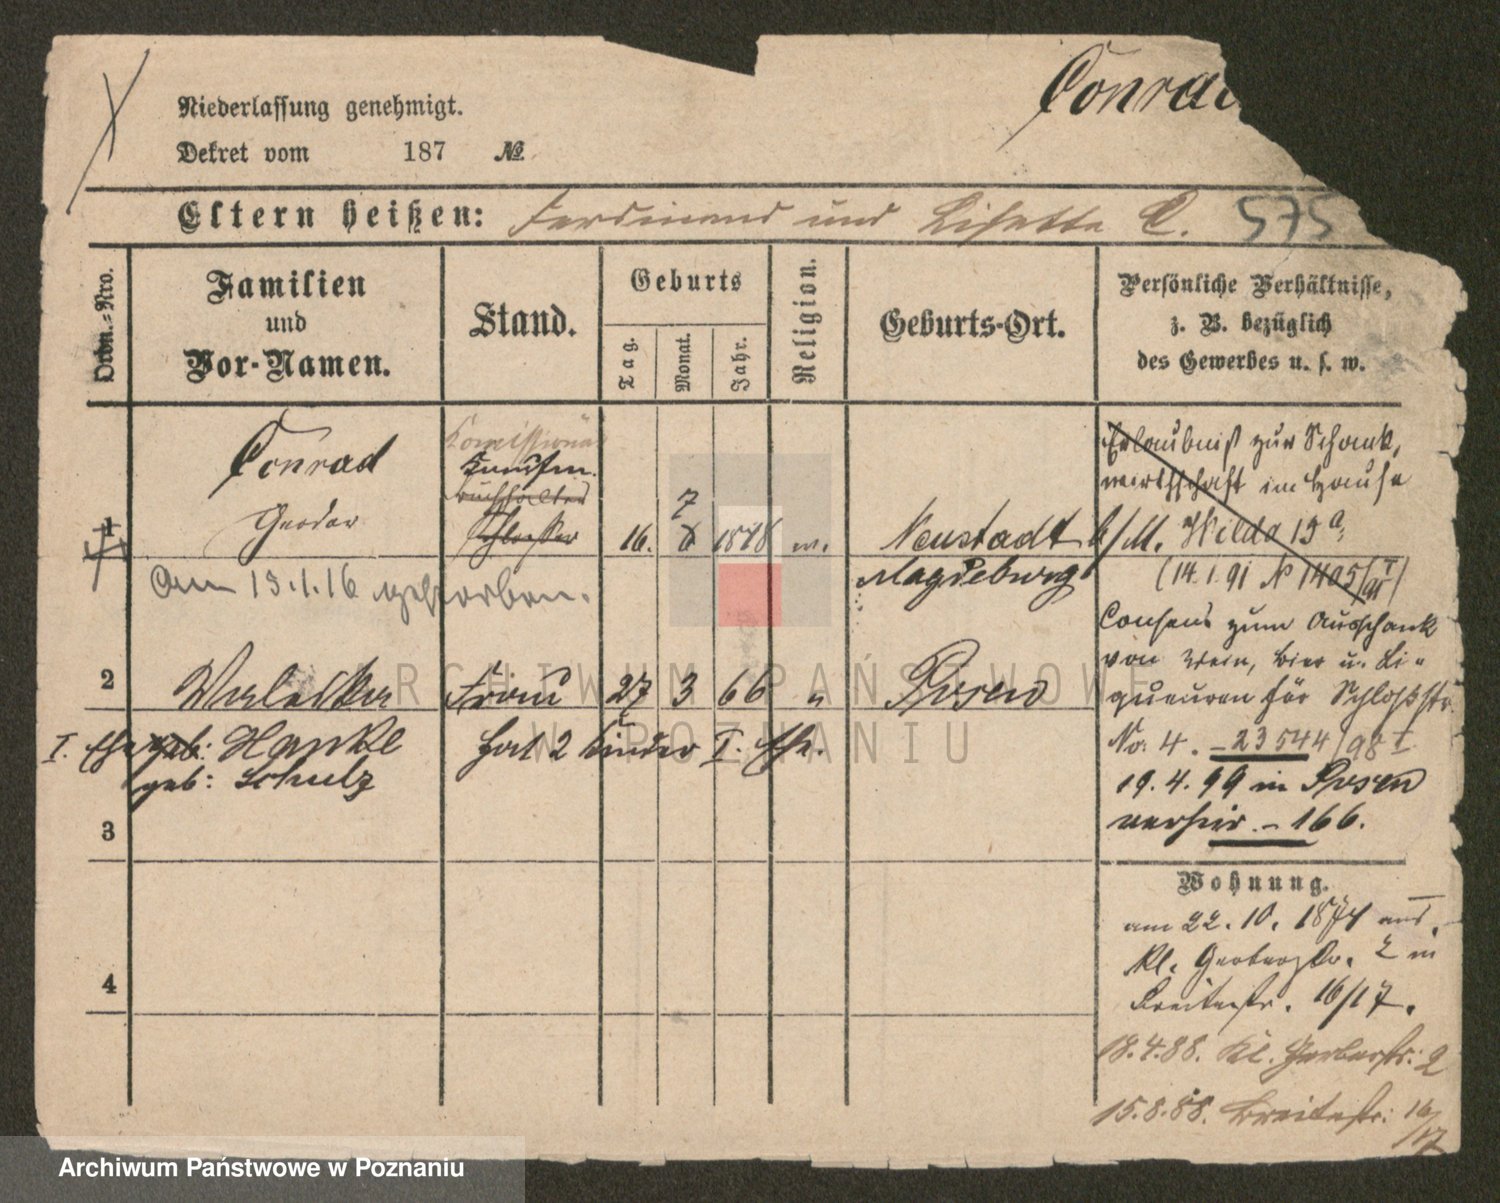 Conrad
Niederlassung genehmigt.
Dekret vom 187 №
Eltern heißen: Ferdinand und Lisette C. 575
Ordn.-Nro.
Familien
und
Vor-Namen.
Stand.
Geburts
Tag.
Monat.
Jahr.
Religion.
Geburts-Ort.
Persönliche Verhältnisse,
z. B. bezüglich
des Gewerbes u. s. w.
1
Conrad
Theodor
Kaufm.
Buchhalter
Schlosser
16.
7
6
Neustadt b/M.
Magdeburg
am 13.1.16 gestorben.
Erlaubniß zur Schank,
wirthschaft im Hause
Wilda 13a,
(14.1.91 № 1405/91 I)
Consens zum Ausschank
von Wein, Bier u. Li-
queuren für Schloßstr.
No. 4. - 23544/98 I
19.4.99 in Posen
verheir. - 166.
2
Frau 27 3 66 " Posen
I. Ehe geb: Hanke
hat 2 Kinder I. Ehe.
geb: Schulz
3
4
Wohnung.
am 22.10. 1874 aus
Kl. Gerberstr. 2 in
Breitestr. 16/17.
18.4.88. Kl. Gerberstr: 2
15.8.88. Breitestr: 16/17
ARCHIWUM PAŃSTWOWE
W POZNANIU
Archiwum Państwowe w Poznaniu